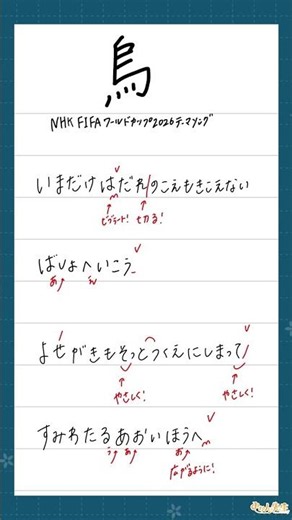 烏
NHK FIFAワールドカップ2026テーマソング
いまだけはだれのこえもきこえない
ビブラート! 切る!
ばしょへいこう
あ え
よせがきもそっとつくえにしまって
やさしく! やさしく!
すみわたるあおいほうへ
う あ お
広げるように!